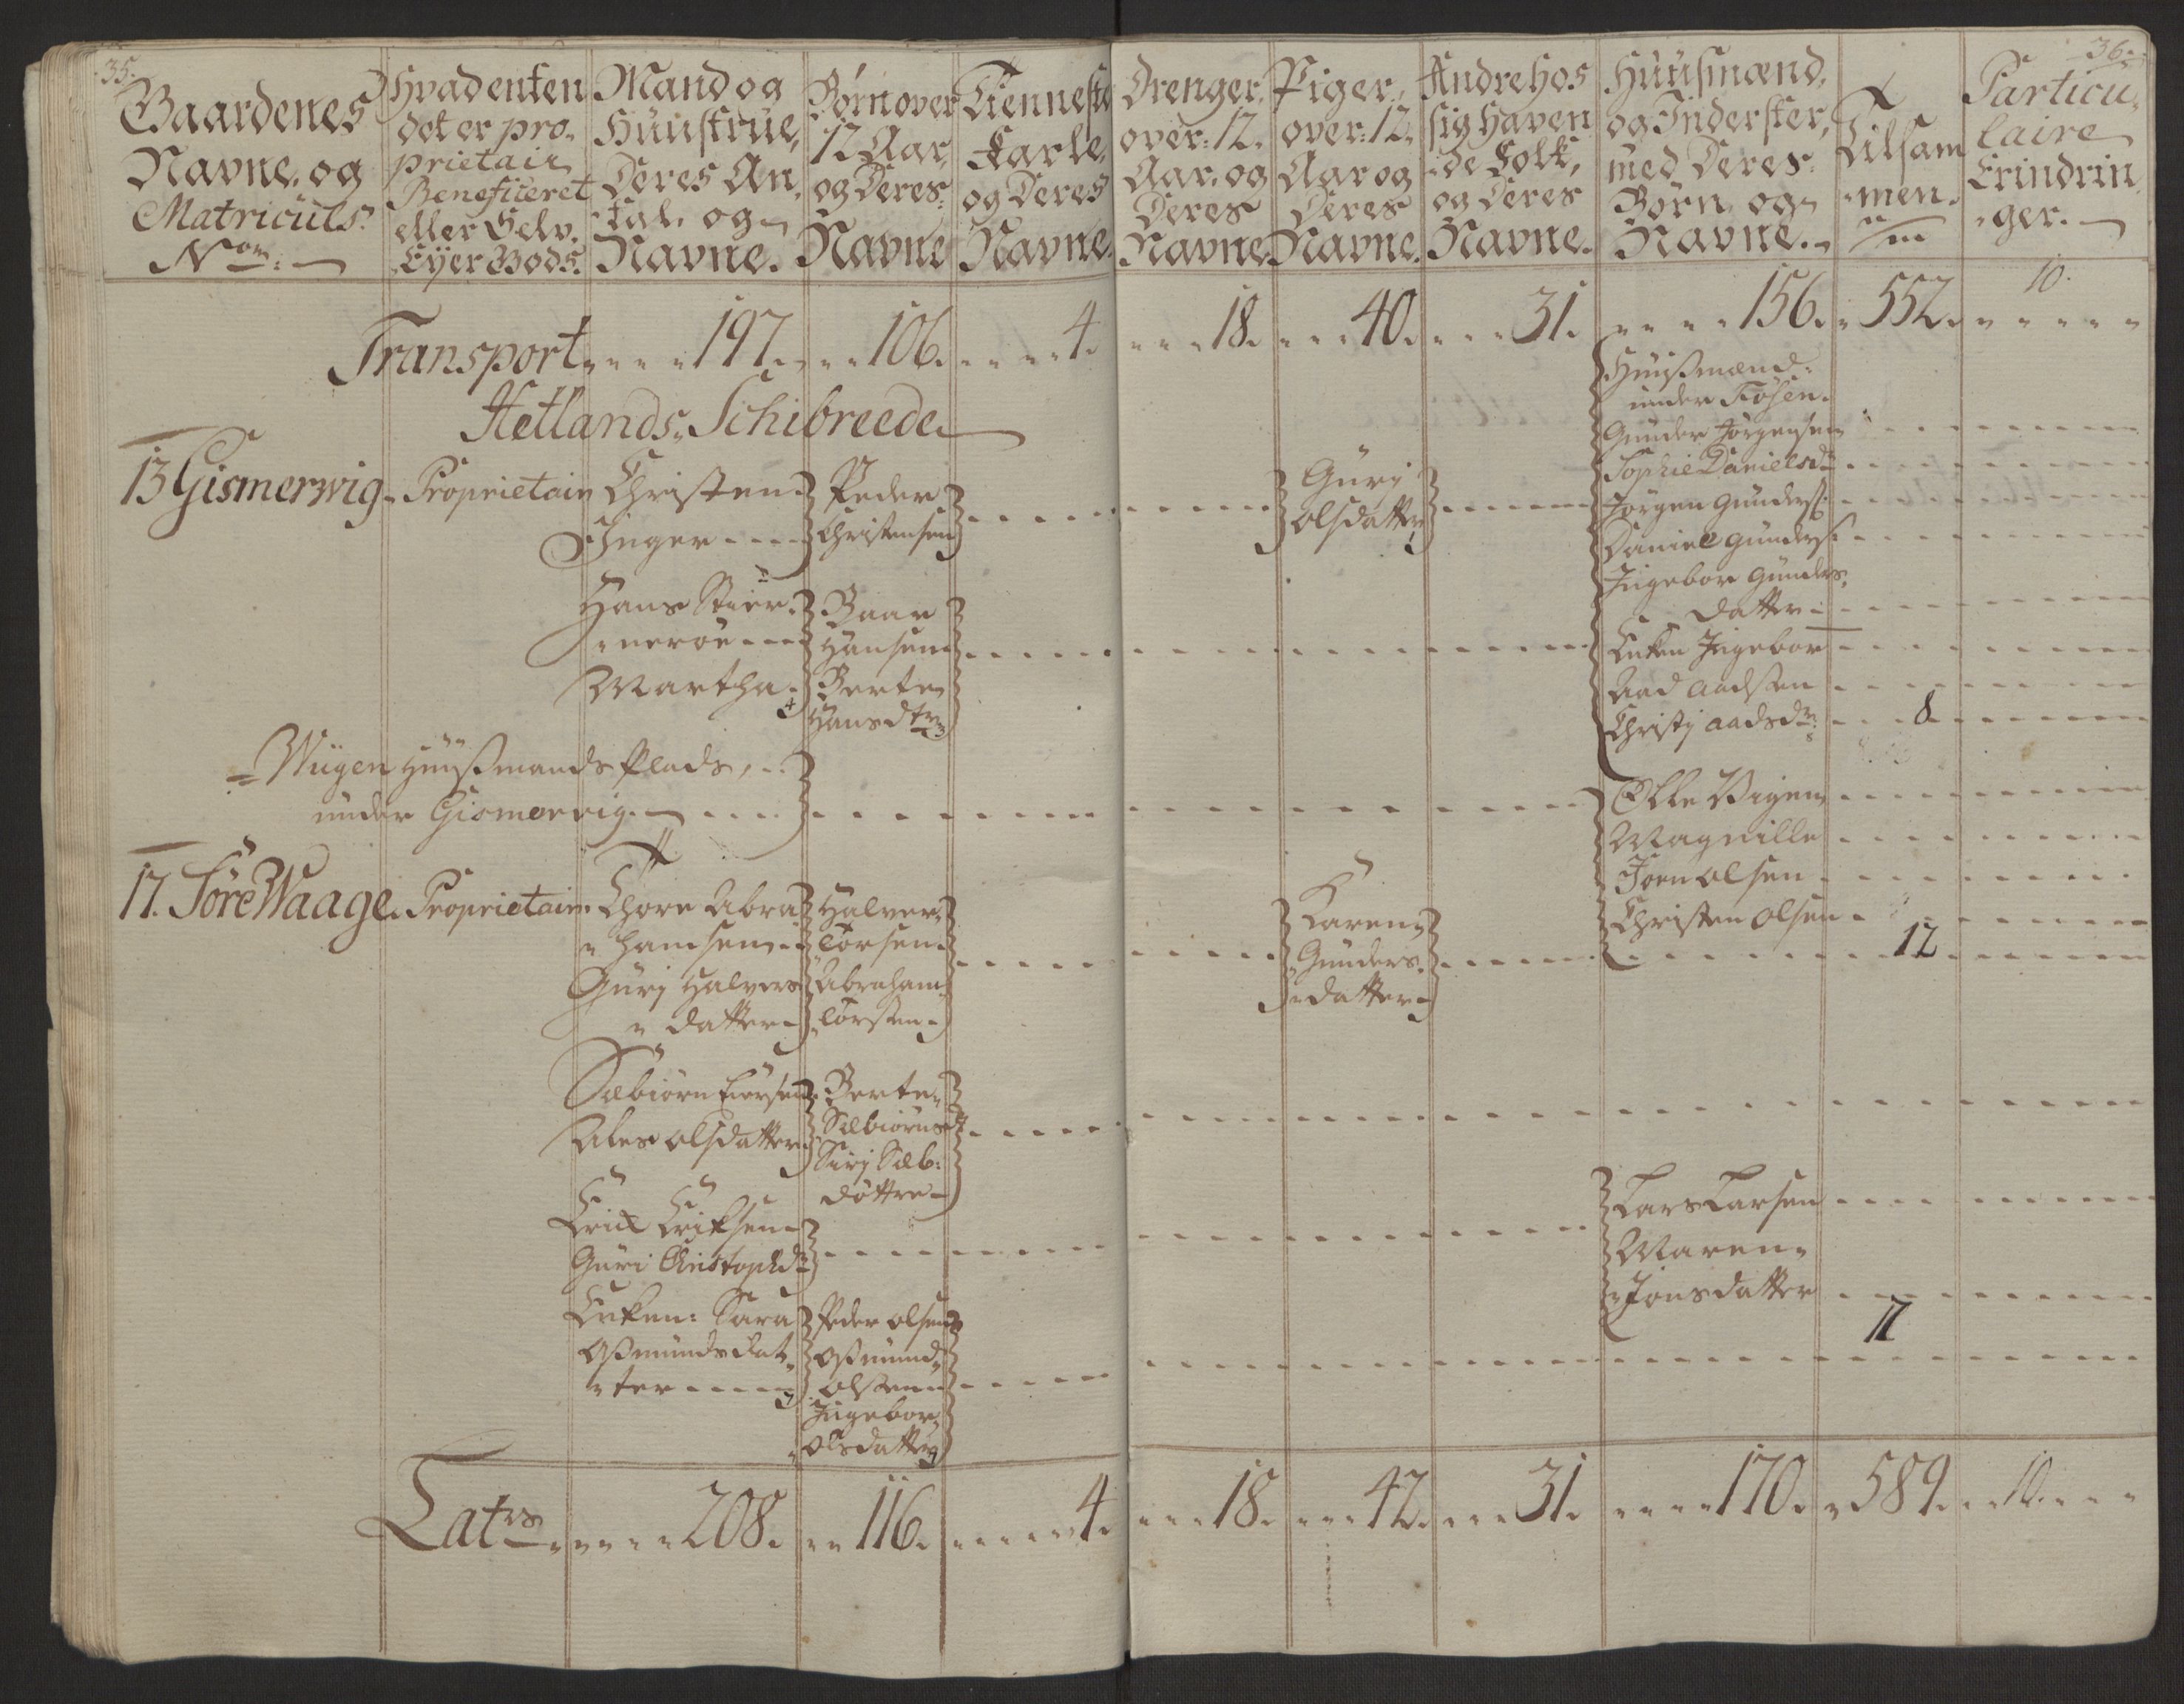 35.
36.
Gaardenes
Navne. og
Matriculs.
Nom:
Hvad enten
det er pro-
prietair
Beneficeret
eller Selv-
Eyer Gods.
Mand og
Huustrue,
Deres An-
tal. og
Navne.
Børn over
12 Aar,
og Deres
Navne
Tienneste
Karle,
og Deres
Navne.
Drenger.
over: 12.
Aar. og
Deres
Navne.
Piger.
over: 12.
Aar og
Deres
Navne.
Andre Hos
sig Haven
de Folk,
og Deres
Navne.
Huusmænd,
og Inderster,
med Deres
Børn og
Navne.
Tilsam
men.
Particu
laire
Erindrin
ger.
Transport 197. 106. 4. 18. 40. 31. 156. 552. 10.
Hetlands. Schibreede
13 Gismerwig. Proprietair
Christen
Inger
Peder
Christensen
Gurj
olsdatter
Huusmænd:
under Fosen.
Gunder Jörgensen
Sophie Danielsdr
Jörgen Gunders:
Daniel Gunders:
Ingebor Gunders
datter
Enken Ingebor
Aad Aadsen
Christj Aadsdr 8
Hans
nerøe
Martha. 4
Baar
Hansen
Berte
Hansdtr
Wiigen Huusmands Plads,
under Gismervig.
Olle Vigen
Magnille
Joen olsen
Christen Olsen
12
17. Söre Waage. Proprietair.
Thore Abra
hamsen
Gurj Halvers
datter
Halver
Torsen.
Abraham
Torsen.
Karen
Gunders
datter
Sæbiörn
Ales olsdatter
Berte
Sæbiörns
Sirj Sæb:
döttre
Erik Eriksen
Guri Christophdr
Lars Larsen
Maren
Jonsdatter
17
Enken: Sara
Osmundsdat
ter
Peder olsen
Osmund
olsen
Ingebor
olsdatter
Latrs 208. 116. 4. 18. 42. 31. 170. 589. 10.